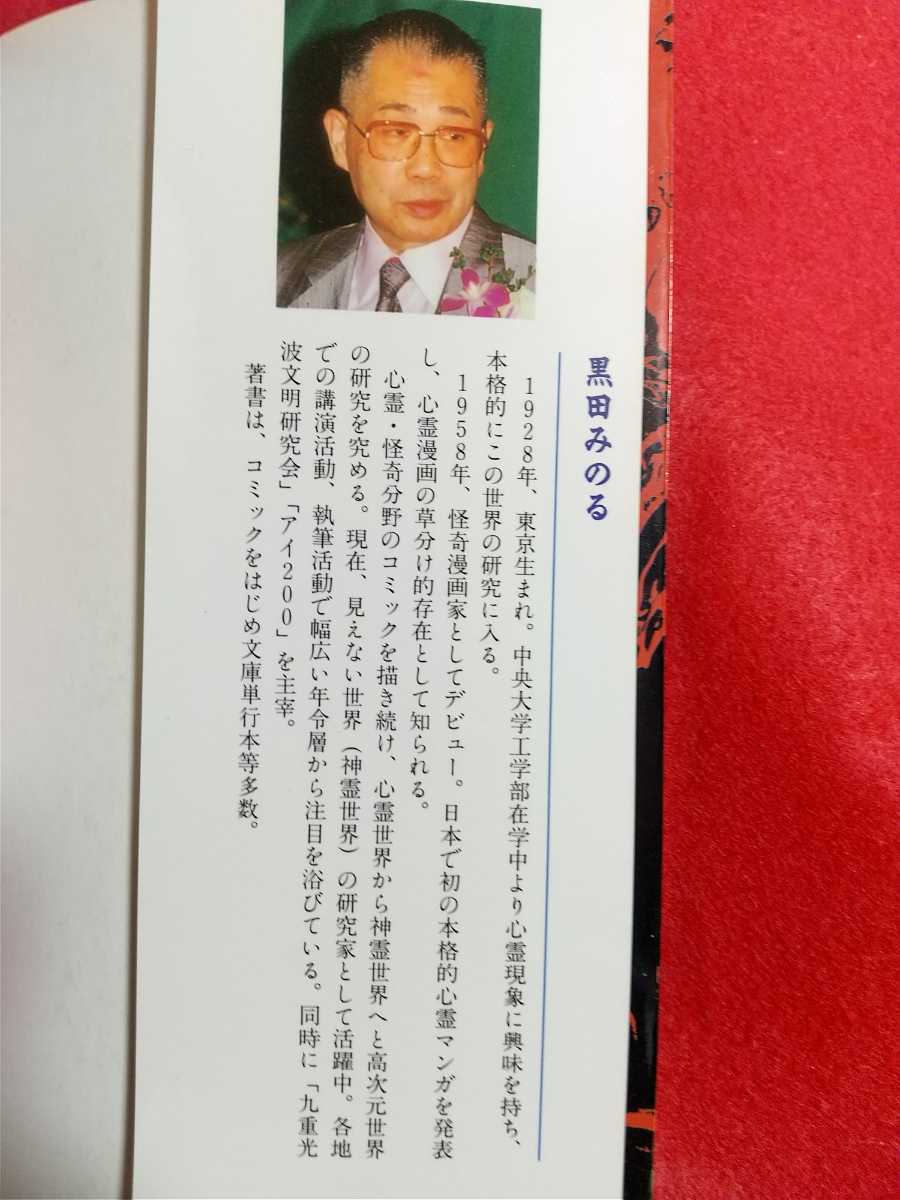 黒田みのる
1928年、東京生まれ。中央大学工学部在学中より心霊現象に興味を持ち、
本格的にこの世界の研究に入る。
1958年、怪奇漫画家としてデビュー。日本で初の本格的心霊マンガを発表
し、心霊漫画の草分け的存在として知られる。
心霊・怪奇分野のコミックを描き続け、心霊世界から神霊世界へと高次元世界
の研究を究める。現在、見えない世界（神霊世界）の研究家として活躍中。各地
での講演活動、執筆活動で幅広い年令層から注目を浴びている。同時に「九重光
波文明研究会」「アイ200」を主宰。
著書は、コミックをはじめ文庫単行本等多数。